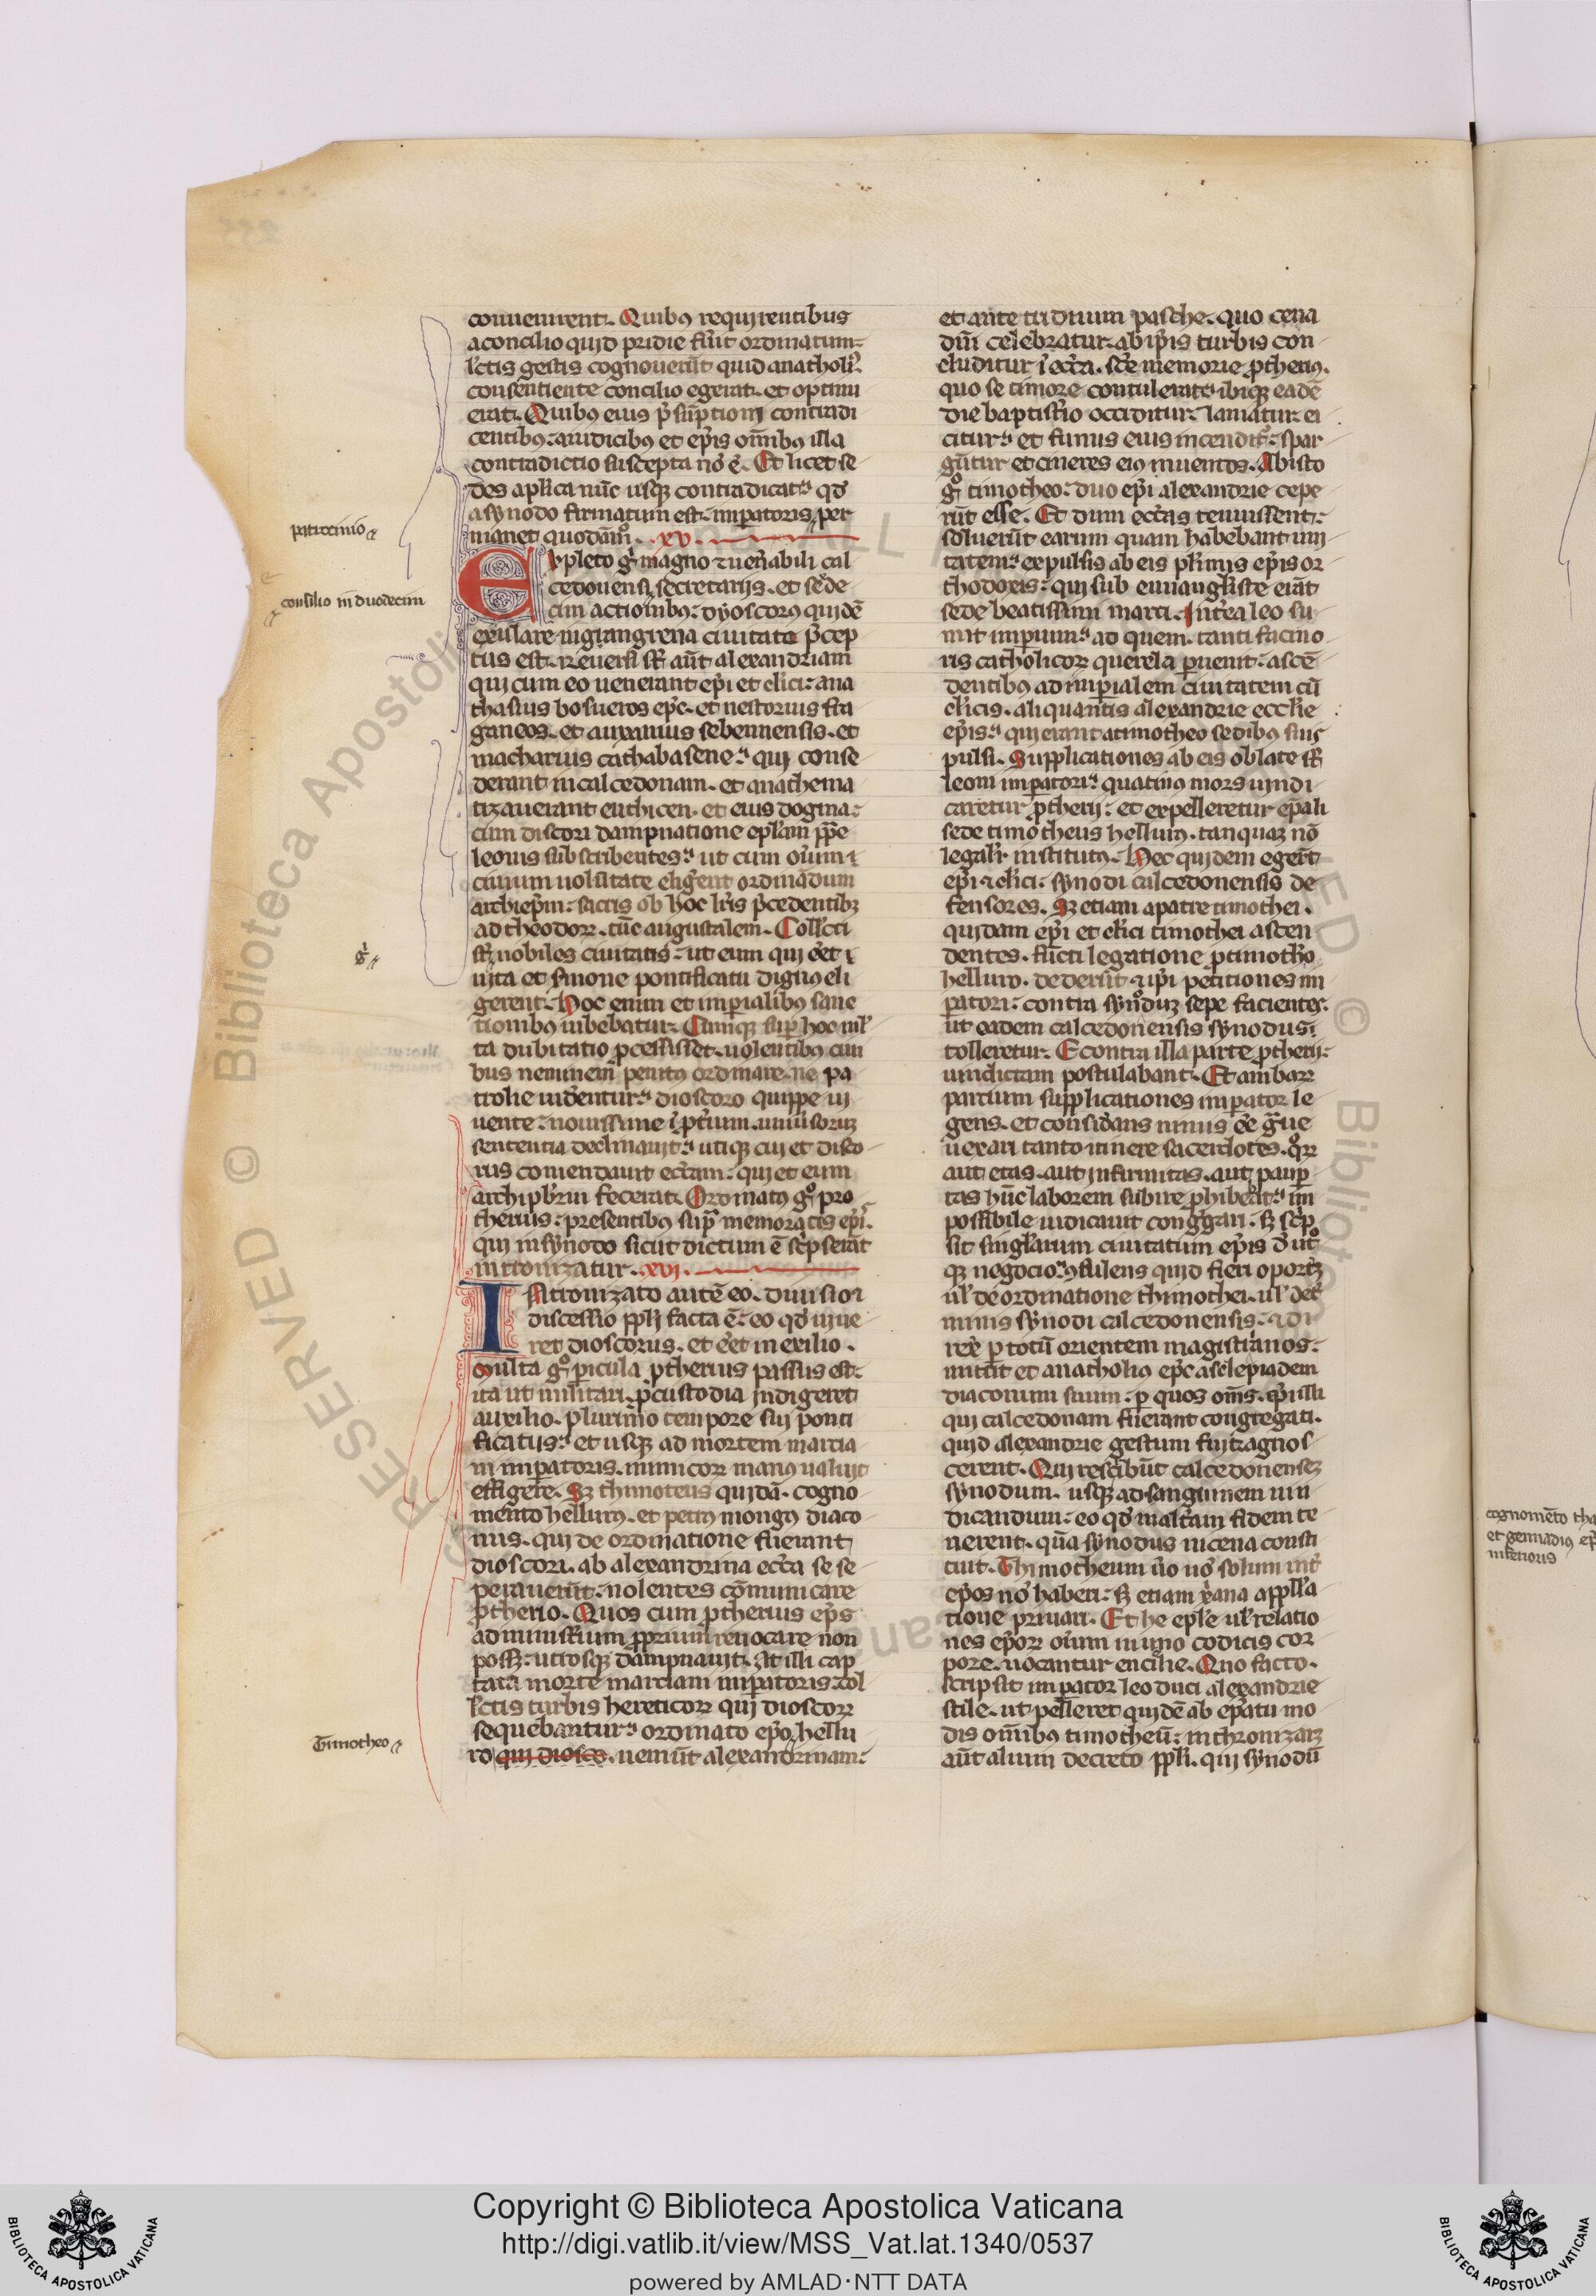 conuenirent. Quibꝰ requirentibus
a concilio quid pridie fuit ordinatum.
lectis gestis cognouerūt quid anatholiꝰ
consentiente concilio egerat. et optinu
erat. Quibꝰ eius psūptioni contradi
centibꝰ. a iudicibꝰ et epis omībꝰ illa
contradictio suscepta nō ē. Et licet se
des aplica nūc usqꝫ contradicat qđ
a synodo firmatum est. imperatoris per
manet quodāmō. .xv.
patrocinio
Expleto gͦ magno ⁊ uenabili cal
cedonensi secretarijs. et sede
cim actionibꝰ. dyoscorꝰ quidē
consilio in duodecim
exulare in giangrena ciuitate pcep
tus est. Reuersi st aūt alexandriam
qui cum eo uenerant epi et clici. ana
thasius bosueros epc. et nestorius fra
ganeos. et auxanius sebennensis. et
macharius cathabasene. qui conse
derant in calcedonam. et anathema
tizauerant euthicen. et eius dogma.
cum discori dampnatione eplam ppe
leonis subscribentes. ut cum oium
ciuium uolūtate eligerent ordinādum
archiepm. sacris ob hoc lris pcedentibꝫ
ad theodorꝝ. tūc augustalem. Collecti
st nobiles ciuitatis. ut eum qui eēt ī
uita et smone pontificatu dignꝰ eli
gerent. Hoc enim et imperialibꝰ sanc
tionibꝰ iubebatur. Cumqꝫ sup hoc ml
ta dubitatio pcessisset. uolentibꝰ ciui
bus neminem penitꝰ ordinare. ne pa
trolie uiderentur. dioscoro quippe ui
uente. nouissime ī ptium. uniuisorꝝ
sententia declinauit. utiqꝫ cui et disco
rus comendauit ecctam. qui et eum
archipbrm fecerat. Ordinatꝰ gͦ pro
therius. presentibꝰ supͣ memoratis epi.
qui in synodo sicut dictum ē scpserāt
intronizatur. .xvi.
Intronizato autē eo. diuisio
discessio ppli facta ē. eo qđ uiue
ret dioscorus. et eēt in exilio.
Multa gͦ picula ptherius passus est.
ita ut militari. pcustodia indigeret
auxilio. plurimo tempore sui ponti
ficatus. et usqꝫ ad mortem marcia
ni imperatoris. inimicorꝝ manꝰ ualuit
effigere. Sꝫ thimoteus quidā. cogno
mento hellurꝰ. et petrꝰ mongꝰ diaco
nus. qui de ordinatione fuerant
dioscori. ab alexandrina eccta se se
perauerūt. nolentes cōmunicare
ptherio. Quos cum ptherius eps
ad ministerium pprium reuocare non
possꝫ. utrosqꝫ dampnauit. At illi cap
tata morte marciani imperatoris. col
lectis turbis hereticorꝝ qui dioscorꝝ
sequebantur. ordinato epo hellu
Timotheo
ro qui diosco. uenīūt alexandrinam.
et ante triduum pasche. quo cena
dnī celebratur. ab ipis turbis con
cluditur ī eccta. scē memorie ptherꝰ.
quo se timore contulerat. ibiqꝫ eadē
die baptistio occiditur. laniatur. ei
citur. et funus eius incendit. spar
gūtur et cineres eiꝰ in uentos. Ab isto
gͦ timotheo. duo epi alexandrie cepe
rūt esse. Et dum ecctas tenuissent.
soluerūt earum quam habebant uni
tatem. expulsis ab eis plimis epis or
thodoxis. qui sub euuangliste erāt
sede beatissimi marci. Interea leo su
mit impium. ad quem. tanti facino
ris catholicorꝝ querela peruenit. ascē
dentibꝰ ad imperialem ciuitatem cū
clicis. aliquantis alexandrie ecclie
epis. qui erant a timotheo sedibꝰ suis
pulsi. Supplicationes ab eis oblate st
leoni imperatori. quatinꝰ mors uindi
caretur ptherij. et expelleretur epali
sede timotheus hellurꝰ. tanquaꝫ nō
legalr institutꝰ. Hec quidem egert
epi ⁊ clici. synodi calcedonensis de
fensores. Sꝫ etiam a parte timothei.
quidam epi et clici timothei ascen
dentes. fūcti legatione p timotho
helluro. dederūt ⁊ ipi petitiones im
peratori. contra synoduꝫ sepe facientes.
ut eadem calcedonensis synodus.
tolleretur. Econtra illa parte ptherij.
uindictam postulabant. Et ambarꝝ
partium supplicationes imperator le
gens. et considerans nimis eē graue
uexari tanto itinere sacerdotes. qͦrꝝ
aut etas. aut infirmitas. aut paup
tas hūc laborem subire phiberet. im
possibile iudicauit congregari. sꝫ scp
sit singlarum ciuitatum epis d utͦ
qꝫ negocio. ꝯsulens quid fieri oportꝫ
ul de ordinatione thimothei. ul de
minis synodi calcedonensis. ⁊ di
rex p totū orientem magistrianos.
mittit et anatholiꝰ epc asclepiadem
diaconum suum. p quos oms. epi illi
qui calcedonam fuerant congregati.
quid alexandrie gestum fuit agnos
cerent. Qui rescibūt calcedonenseꝫ
synodum. usqꝫ ad sanguinem uin
dicandum. eo qđ n alteram fidem te
nerent. quā synodus nicena consti
tuit. Thimotheum uo nō solum int
epos nō haberi. sꝫ etiam xana appella
tione priuari. Et he eple ul relatio
nes eporꝝ oium in uno codicis cor
pore. uocantur enciclie. Quo facto.
scripsit imperator leo duci alexandrie
stile. ut pelleret quidē ab epatu mo
dis omībꝰ timotheū. inthronizarꝫ
aūt alium decreto ppli. qui synodū
cognomēto tha
et gennadiꝰ ep
inferioris
Copyright © Biblioteca Apostolica Vaticana
http://digi.vatlib.it/view/MSS_Vat.lat.1340/0537
powered by AMLAD·NTT DATA
BIBLIOTECA APOSTOLICA VATICANA
BIBLIOTECA APOSTOLICA VATICANA